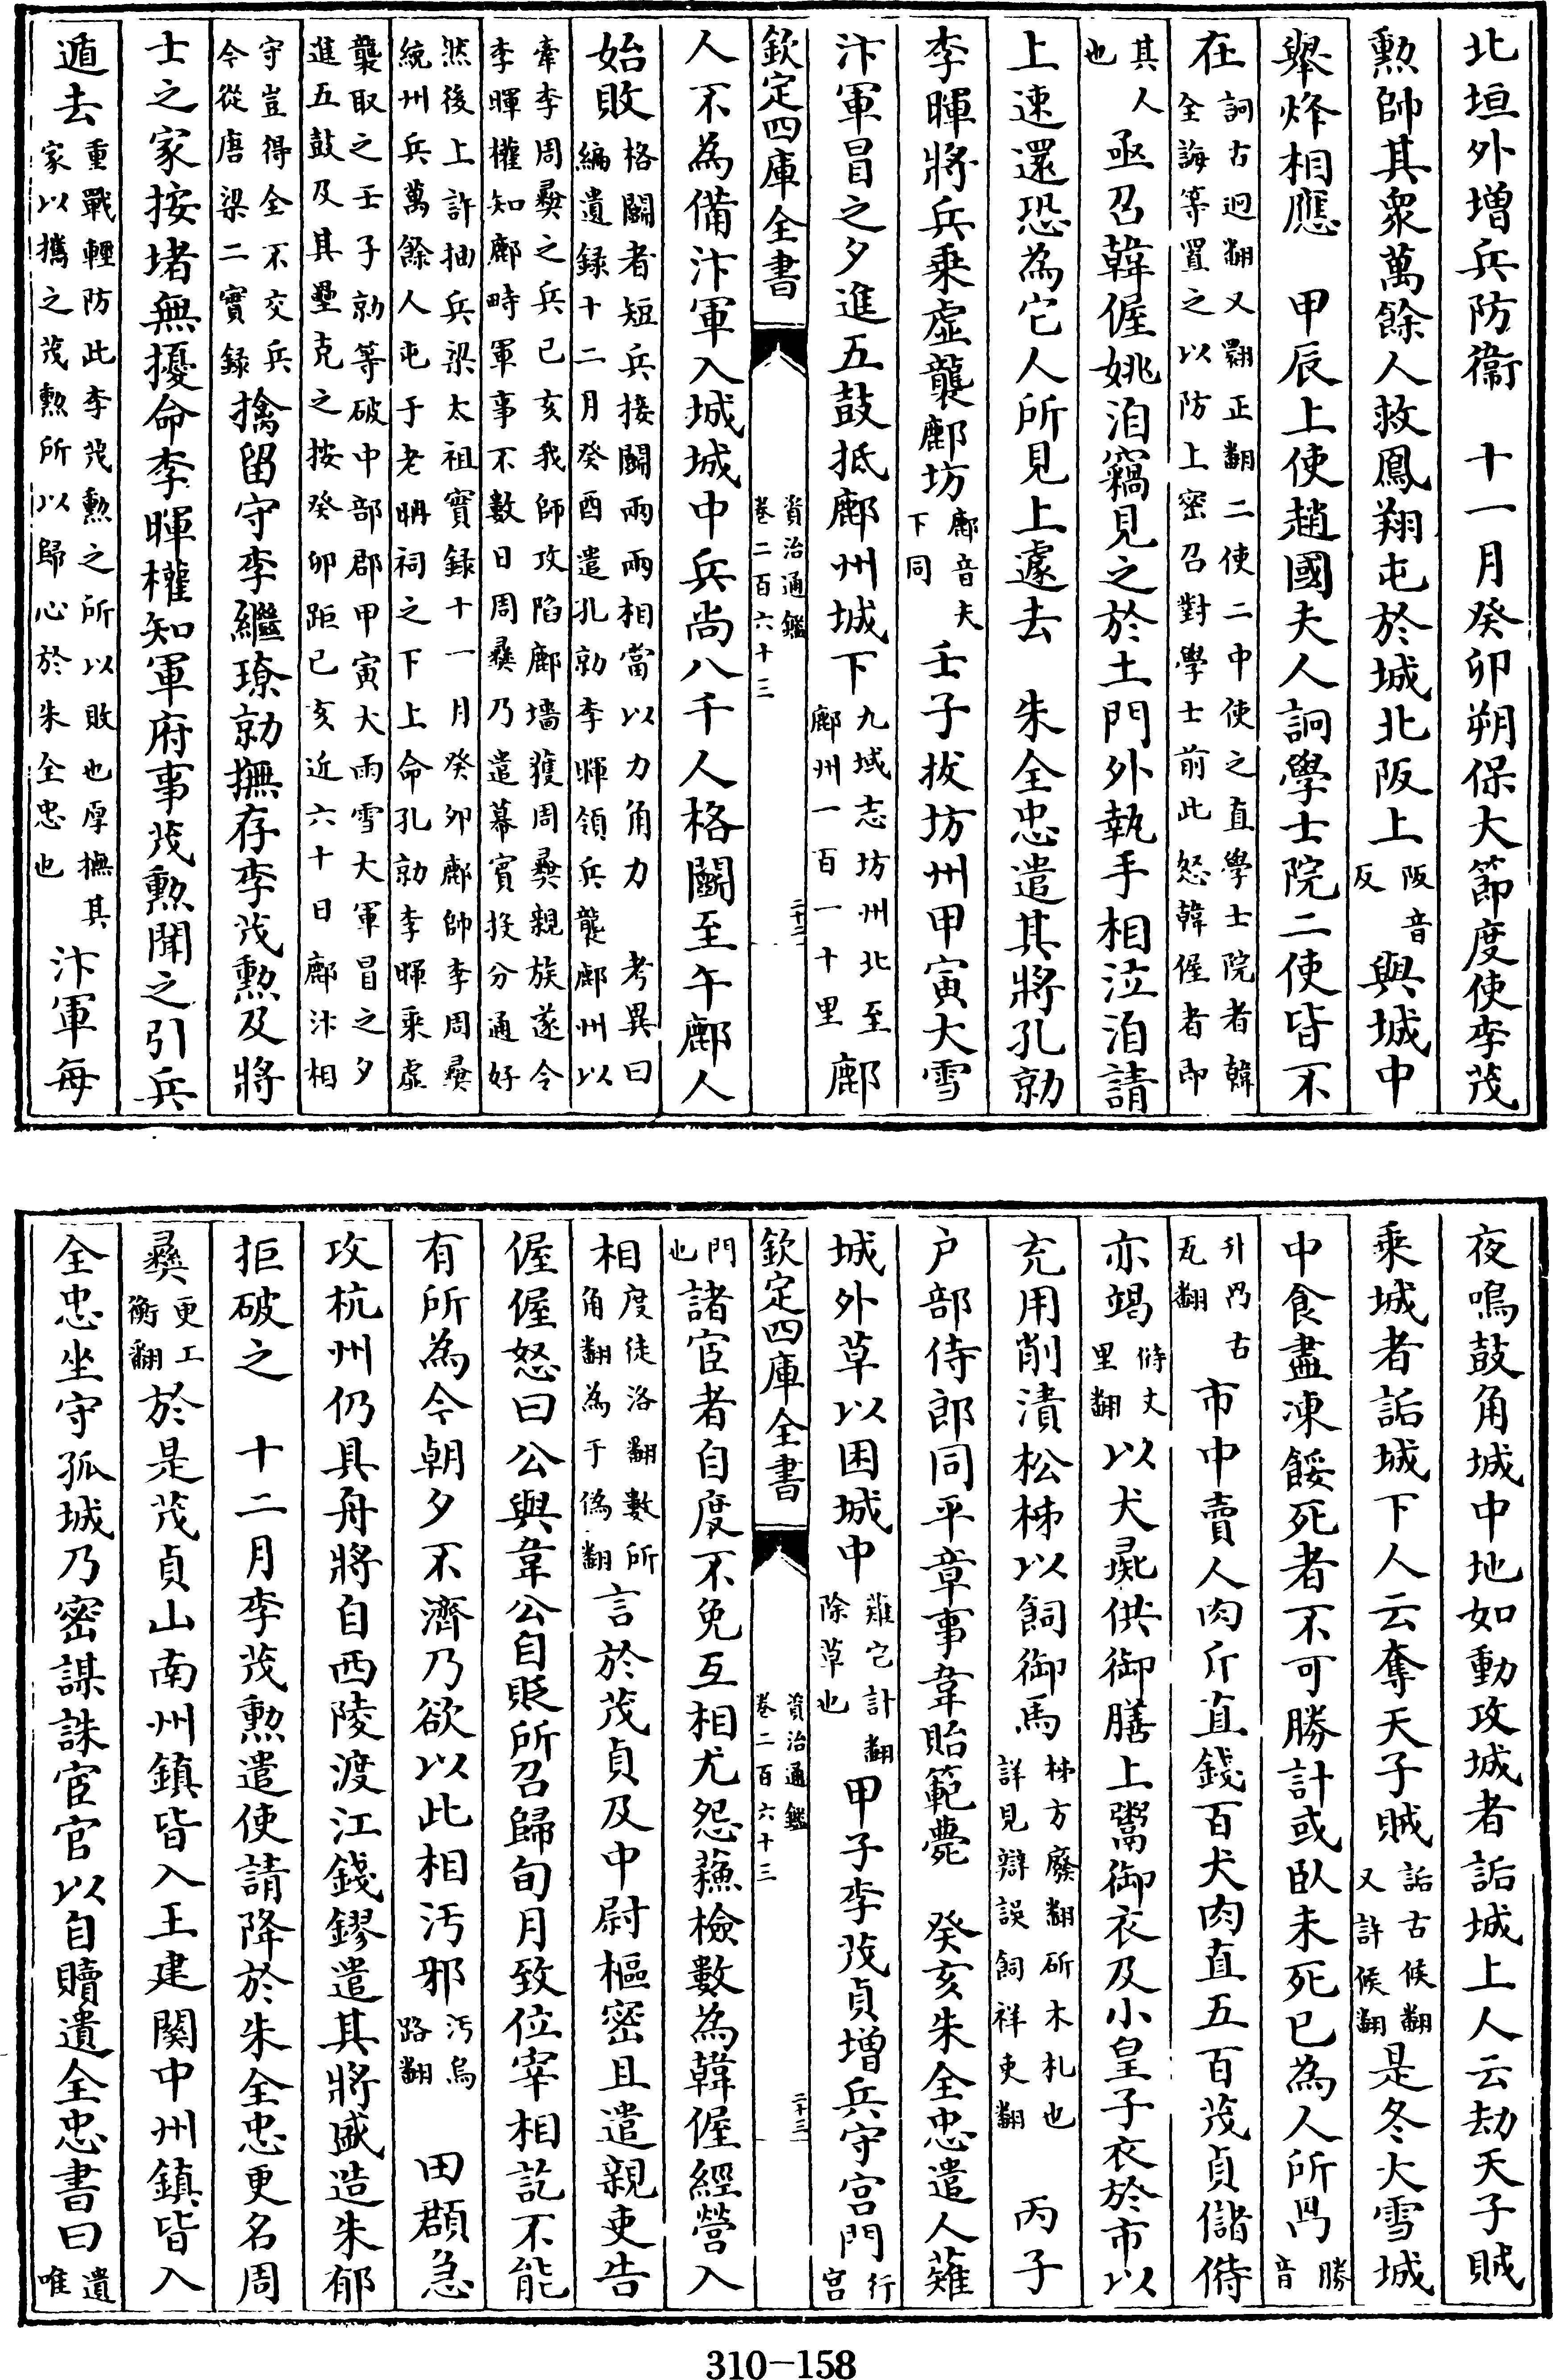 北垣外增兵防衞　十一月癸卯朔保大節度使李茂
勲帥其衆萬餘人救鳳翔屯於城北阪上阪音反與城中
舉烽相應　甲辰上使趙國夫人詗學士院二使皆不
在詗古迥翻又翾正翻二使二中使之直學士院者韓全誨等置之以防上密召對學士前此怒韓偓者即
其人也亟召韓偓姚洎竊見之於土門外執手相泣洎請
上速還恐為它人所見上遽去　朱全忠遣其將孔勍
李暉將兵乗虚襲鄜坊鄜音夫下同壬子拔坊州甲寅大雪
汴軍冒之夕進五鼓抵鄜州城下九域志坊州北至鄜州一百一十里鄜
欽定四庫全書　資治通鑑卷二百六十三　二十三
人不為備汴軍入城城中兵尚八千人格鬭至午鄜人
始敗格鬭者短兵接鬭兩兩相當以力角力　考異曰編遺録十二月癸酉遣孔勍李暉領兵襲鄜州以
牽李周彝之兵己亥我師攻陷鄜墻獲周彝親族遂令李暉權知鄜畤軍事不數日周彝乃遣幕賔投分通好
然後上許抽兵梁太祖實録十一月癸卯鄜帥李周彝統州兵萬餘人屯于老祠之下上命孔勍李暉乘虚
襲取之壬子勍等破中部郡甲寅大雨雪大軍冒之夕進五鼓及其壘克之按癸卯距己亥近六十日鄜汴相
守豈得全不交兵今從唐梁二實録擒留守李繼璙勍撫存李茂勲及將
士之家按堵無擾命李暉權知軍府事茂勲聞之引兵
遁去重戰輕防此李茂勲之所以敗也厚撫其家以攜之茂勲所以歸心於朱全忠也汴軍每
夜鳴鼓角城中地如動攻城者詬城上人云劫天子賊
乘城者詬城下人云奪天子賊詬古候翻又許候翻是冬大雪城
中食盡凍餒死者不可勝計或臥未死已為人所冎勝音
升冎古瓦翻市中賣人肉斤直錢百犬肉直五百茂貞儲偫
亦竭偫丈里翻以犬彘供御膳上鬻御衣及小皇子衣於市以
充用削漬松柹以飼御馬柹方廢翻斫木札也詳見辯誤飼祥吏翻　丙子
户部侍郎同平章事韋貽範薨　癸亥朱全忠遣人薙
城外草以困城中薙它計翻除草也甲子李茂貞增兵守宫門行宫
欽定四庫全書　資治通鑑卷二百六十三　二十三
門也諸宦者自度不免互相尤怨蘓檢數為韓偓經營入
相度徒洛翻數所角翻為于偽翻言於茂貞及中尉樞密且遣親吏告
偓偓怒曰公與韋公自貶所召歸旬月致位宰相訖不能
有所為今朝夕不濟乃欲以此相汚邪汚烏路翻　田頵急
攻杭州仍具舟將自西陵渡江錢鏐遣其將盛造朱郁
拒破之　十二月李茂勲遣使請降於朱全忠更名周
彝更工衡翻於是茂貞山南州鎮皆入王建關中州鎮皆入
全忠坐守孤城乃密謀誅宦官以自贖遺全忠書曰遺唯
310-158